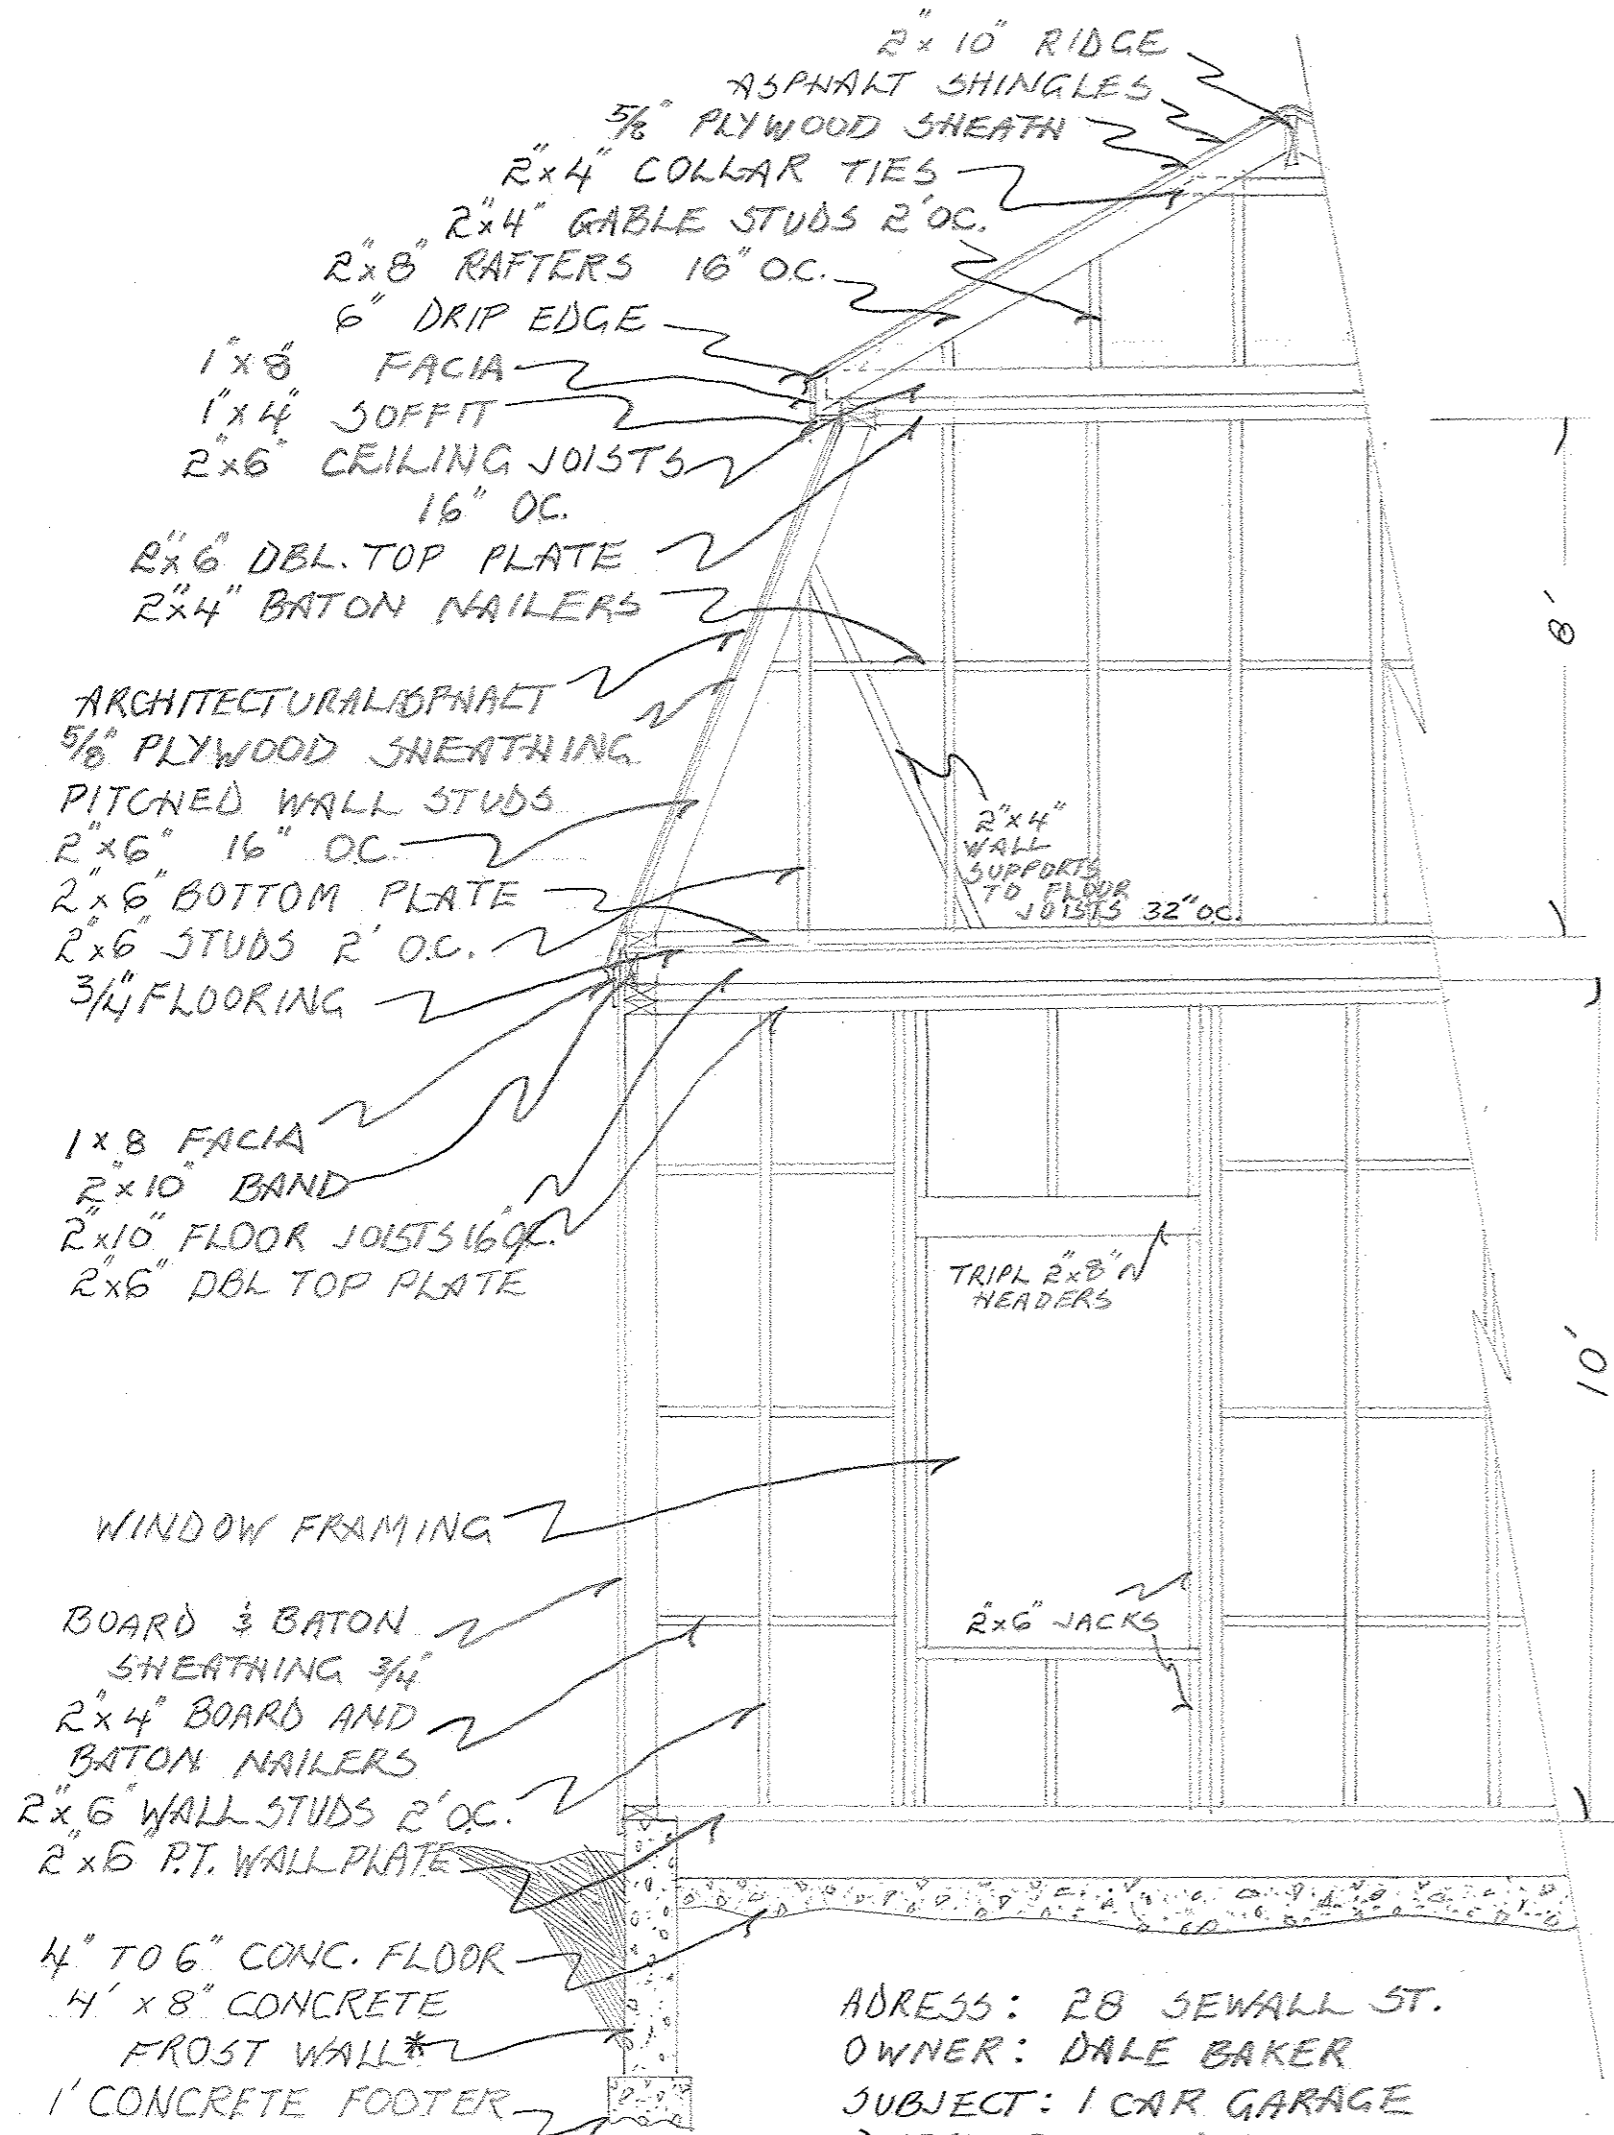 2"x 10" RIDGE
ASPHALT SHINGLES
5/8" PLYWOOD SHEATH
2"x4" COLLAR TIES
2"x4" GABLE STUDS 2' O.C.
2"x8" RAFTERS 16" O.C.
6" DRIP EDGE
1"x 8" FACIA
1"x 4" SOFFIT
2"x6" CEILING JOISTS
16" O.C.
2"x 6" DBL. TOP PLATE
2"x4" BATON NAILERS
ARCHITECTURAL ASPHALT
5/8" PLYWOOD SHEATHING
PITCHED WALL STUDS
2"x6" 16" O.C.
2"x 6" BOTTOM PLATE
2"x6" STUDS 2' O.C.
3/4" FLOORING
2"x4"
WALL
SUPPORTS
TO FLOOR
JOISTS 32" O.C.
8'
1 x 8 FACIA
2"x 10" BAND
2"x10" FLOOR JOISTS 16" O.C.
2"x6" DBL TOP PLATE
TRIPL 2"x8"
HEADERS
10'
WINDOW FRAMING
BOARD & BATON
SHEATHING 3/4"
2"x 4" BOARD AND
BATON NAILERS
2"x6" JACKS
2"x 6" WALL STUDS 2' O.C.
2"x6" P.T. WALL PLATE
4" TO 6" CONC. FLOOR
4' x 8" CONCRETE
FROST WALL*
1' CONCRETE FOOTER
ADRESS: 28 SEWALL ST.
OWNER: DALE BAKER
SUBJECT: 1 CAR GARAGE